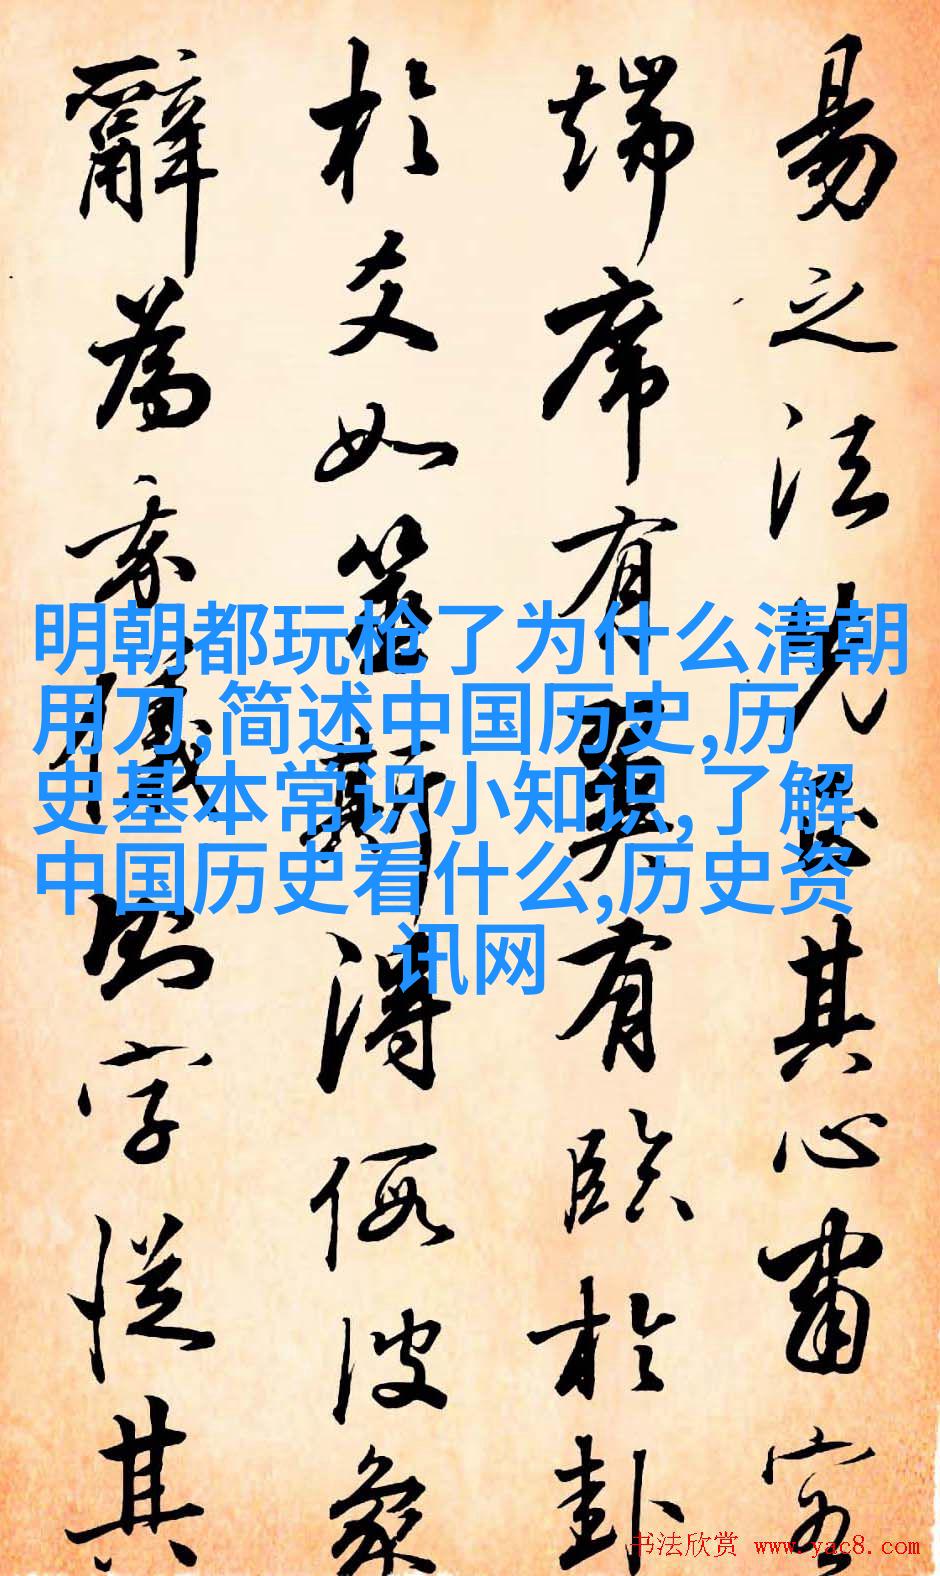 易之法先正其心肅容
端席有翼有臨於卦
於爻如筮斯得假彼象
辭為我儀則字從其
明朝都玩枪了为什么清朝
用刀,简述中国历史,历
史基本常识小知识,了解
中国历史看什么,历史资
讯网
书法欣赏 www.yac8.com